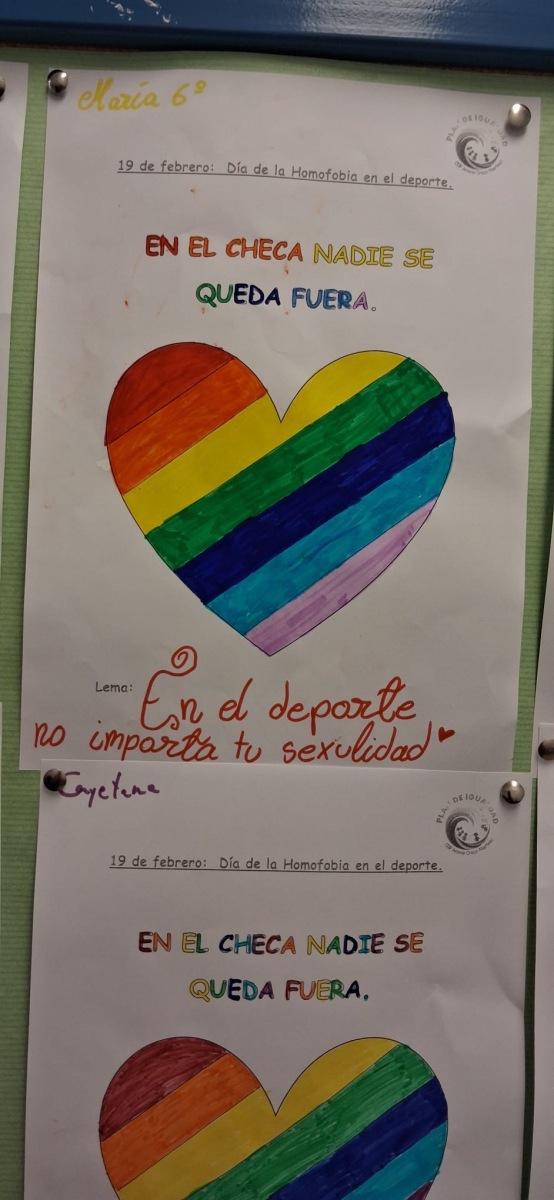 María 6º
PLAN DE IGUALDAD
19 de febrero: Día de la Homofobia en el deporte.
EN EL CHECA NADIE SE
QUEDA FUERA.
Lema: En el deporte
no importa tu sexulidad
Cayetana
PLAN DE IGUALDAD
19 de febrero: Día de la Homofobia en el deporte.
EN EL CHECA NADIE SE
QUEDA FUERA.